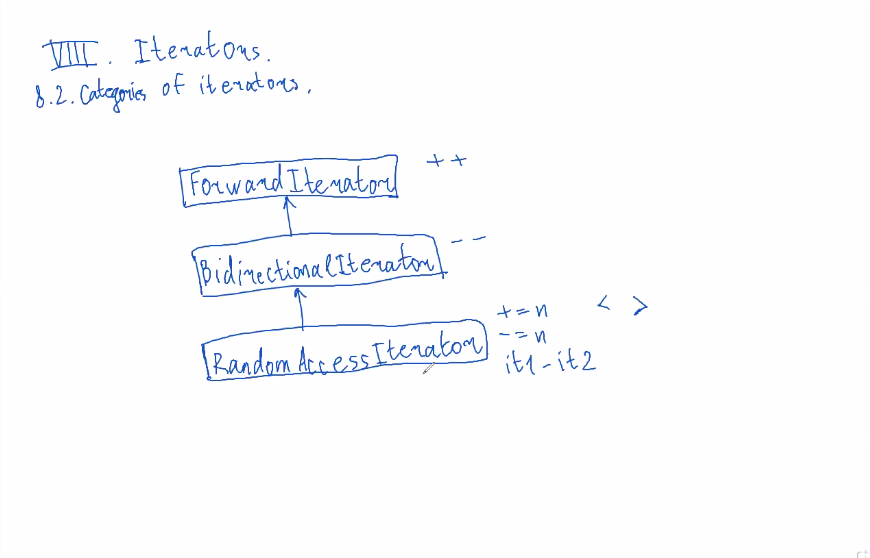 VIII. Iterators.
8.2. Categories of iterators.
ForwardIterator ++
BidirectionalIterator --
RandomAccessIterator += n < >
-= n
it1 - it2